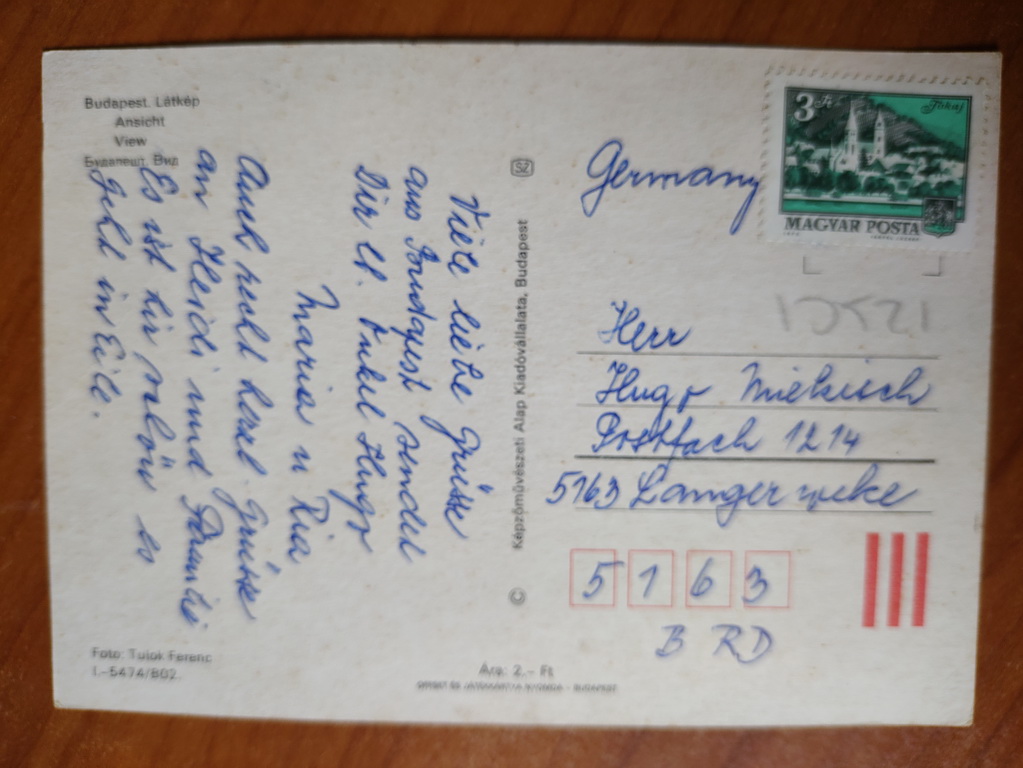 Budapest. Látkép
Ansicht
View
Будапешт. Вид
Viele liebe Grüsse
aus Budapest sendet
Dir lb. Onkel Hugo
Maria u Ria
Auch recht herzl. Grüsse
an Heidi und Familie
Es ist hir schön es
geht in Eile.
Foto: Tulok Ferenc
I.-5474/802.
Képzőművészeti Alap Kiadóvállalata, Budapest
©
Ára: 2.- Ft
OFFSET ÉS JÁTÉKKÁRTYA NYOMDA - BUDAPEST
3 Ft
Tokaj
MAGYAR POSTA
Germany
Herr
Hugo Mirkisch
Postfach 1214
5163 Langerweke
5 1 6 3
B RD